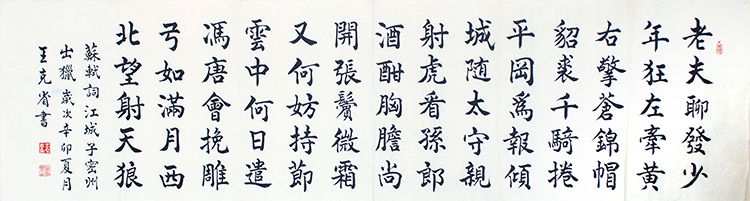 老夫聊發少
年狂左牽黄
右擎蒼錦帽
貂裘千騎捲
平岡爲報傾
城随太守親
射虎看孫郎
酒酣胸膽尚
開張鬢微霜
又何妨持節
雲中何日遣
馮唐會挽雕
弓如滿月西
北望射天狼
蘇軾詞江城子密州
出獵歲次辛卯夏月
王克省書